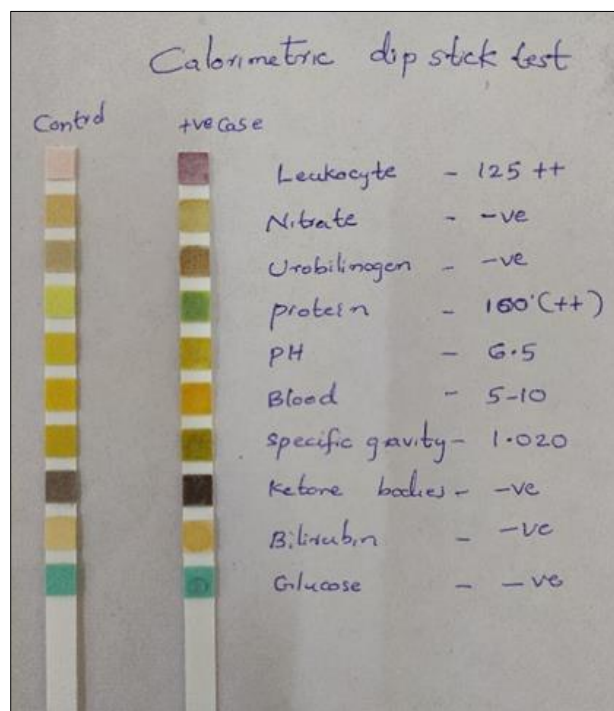 Calorimetric dip stick test
Control +ve case
Leukocyte - 125 ++
Nitrate - -ve
Urobilinogen - -ve
protein - 100 (++)
PH - 6.5
Blood - 5-10
specific gravity - 1.020
Ketone bodies - -ve
Bilirubin - -ve
Glucose - -ve